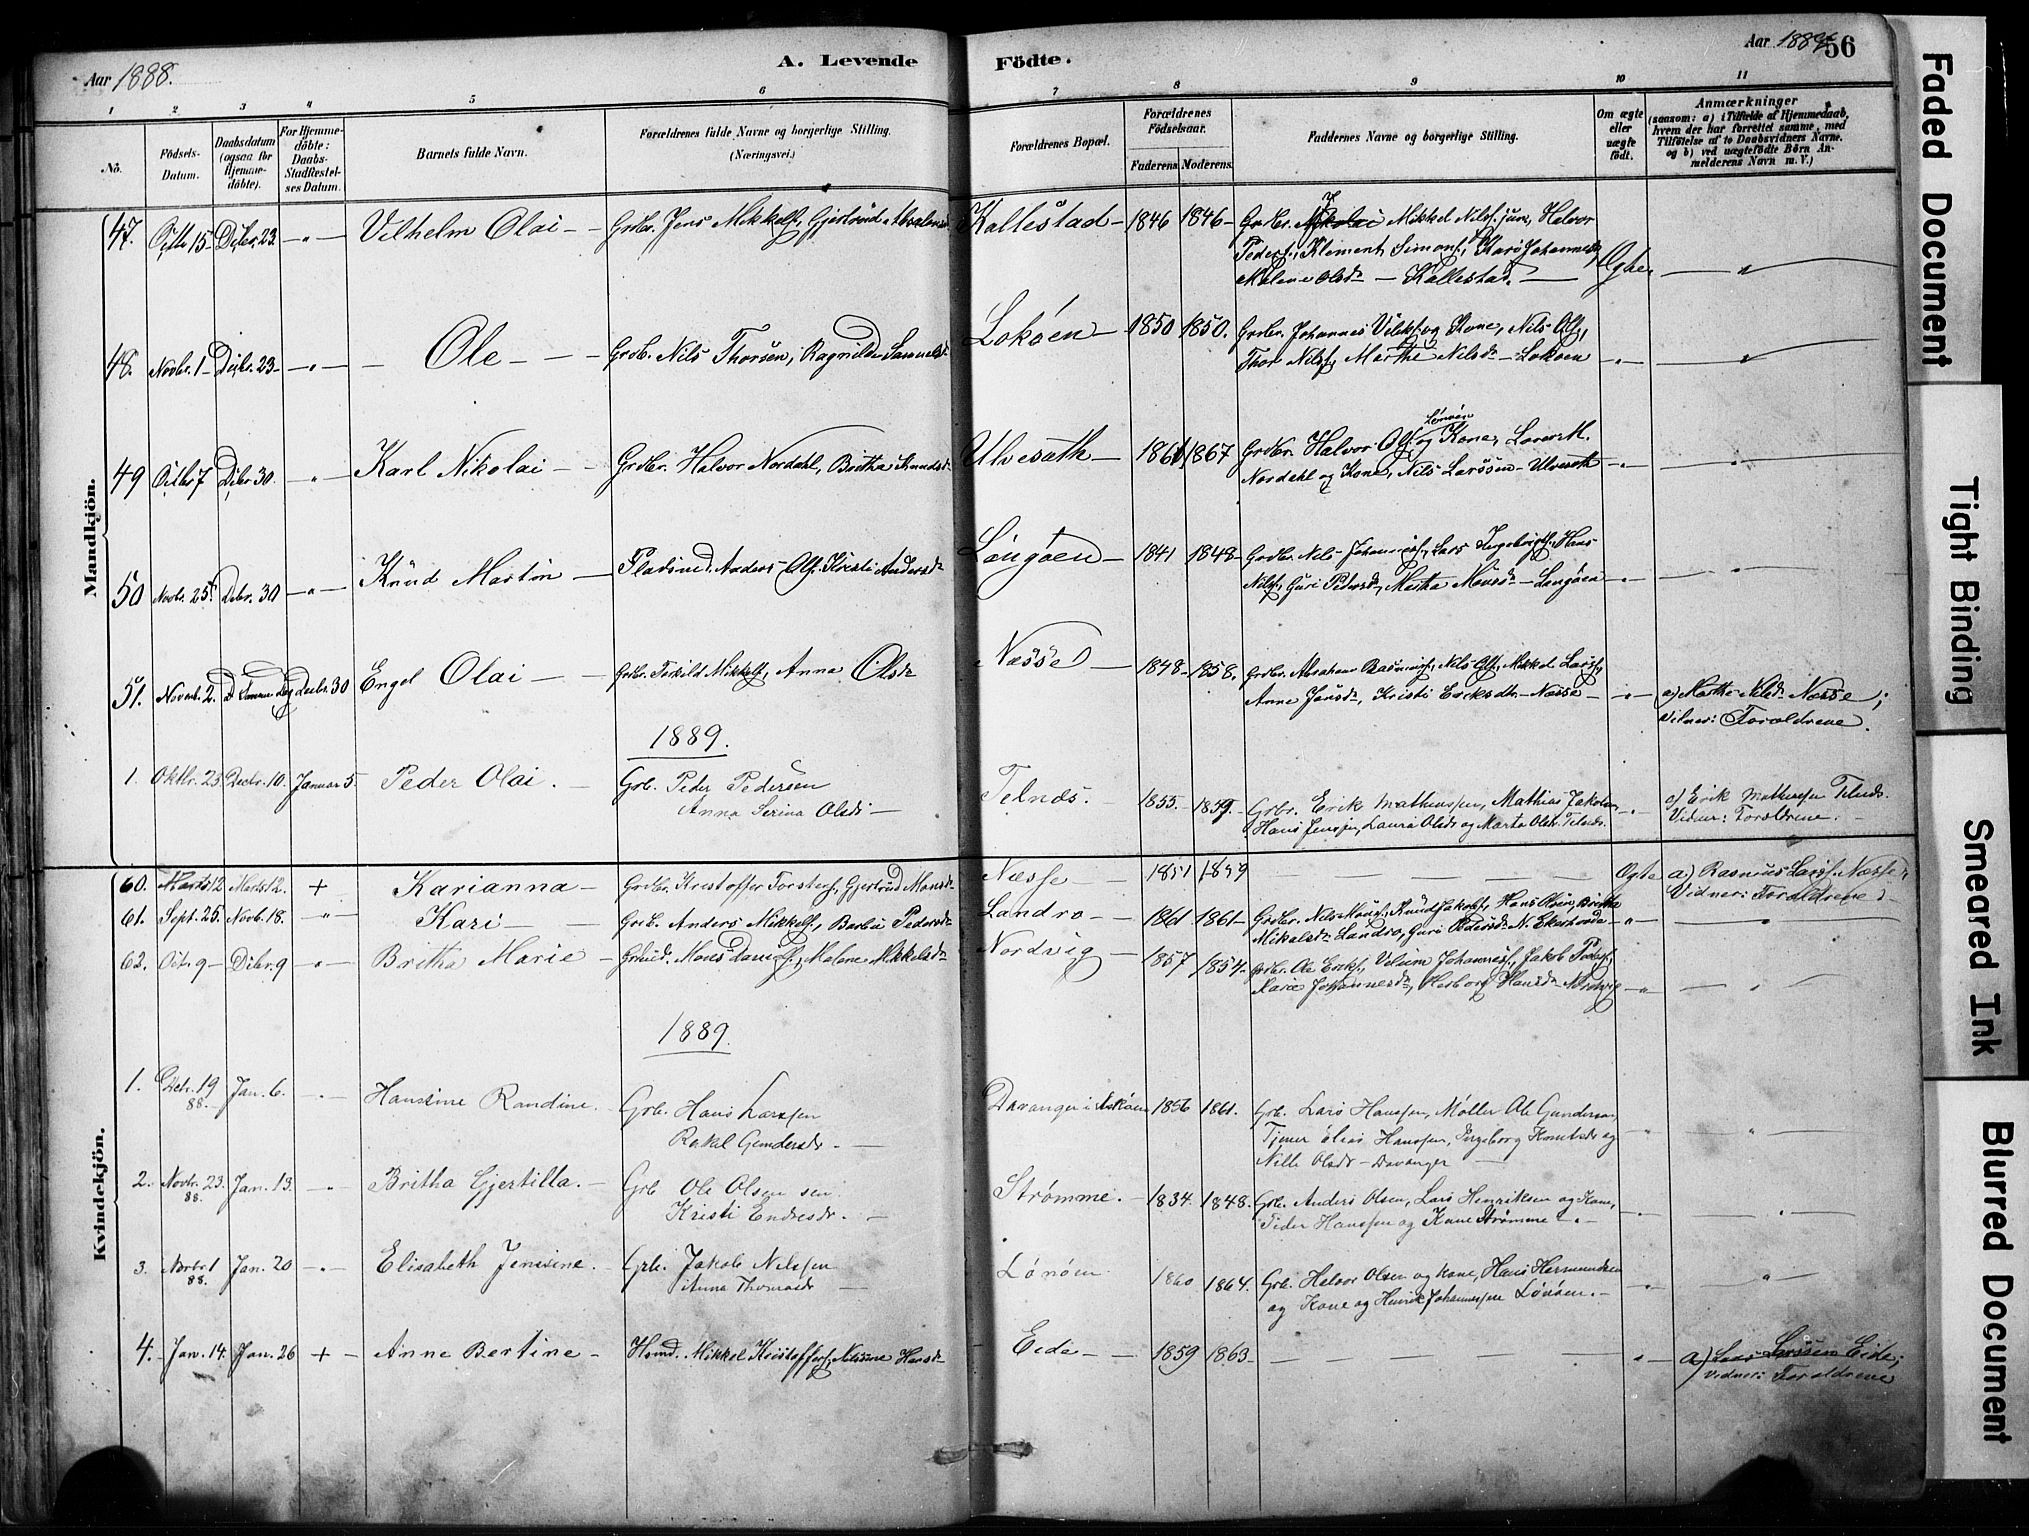 Aar 1888.
A. Levende
Födte.
Aar 1889
56
1 2 3 4 5 6 7 8 9 10 11
No.
Födsels-Datum.
Daabsdatum (ogsaa for Hjemme-döbte).
For Hjemme-döbte: Daabs-Stadfestel-ses Datum.
Barnets fulde Navn.
Forældrenes fulde Navne og borgerlige Stilling.
(Næringsvei.)
Forældrenes Bopæl.
Forældrenes Födselsaar.
Faderens Moderens.
Faddernes Navne og borgerlige Stilling.
Om ægte eller uægte födt.
Anmærkninger
(saasom: a) i Tilfælde af Hjemmedaab, hvem der har forrettet samme, med Tilföielse af to Daabsvidners Navne, og b) ved uægtefödte Börn Anmelderens Navn m. V.)
Mandkjön.
47. Octb 15 Decbr. 23 - " - Vilhelm Olai - Grdbr. Jens Mikkels., Gjertrud Absalonsd. Kallestad - 1846 1846 - Grdbr. Mikkel Nilss. jun., Halvor
Peders., Kliment Simons., Kari Johannesd.,
Malene Olsdr - Kallestad. - Ægte, - " -
48. Novbr. 1 - Decbr. 23 - " - Ole - Grdb. Nils Thorsen, Ragnilde Samuelsd. Lokøen - 1850 1850. Grdbr. Johannes Vilks. og Kone, Nils Ols.,
Thor Nilss., Marthe Nilsdr - Lokøen - " - - " -
49 Octbr 7 Decbr 30. - " - Karl Nikolai - Grdbr. Halvor Nordahl, Britha Knudsd. Ulvesæth - 1861 1867 Grdbr. Halvor Ols. og Kone, Lønøen
Nordahl og Kone, Nils Larssen - Ulvesæth - " - - " -
50 Novbr. 25 Decbr. 30 - " - Knud Martin - Pladsmd. Anders Ols. Kristi Andersdr Langøen - 1841 1848 - Grdbr. Nils Johanness., Lars Ingebrigts., Hans
Nilss., Guri Pedersdr, Martha Monsdr - Langøen - " - - " -
51. Novemb. 2. Decbr 30 Engel Olai - Grdbr. Torkild Mikkels., Anna Olsdr Næsse - 1848 - 1858. Grdbr. Abraham Rasmuss., Nils Ols., Mikkel Larss.,
Anne Jansdr, Kristi Eriksdtr - Næsse - " - a) Marthe Nilsdr Næsse;
Vidner: Forældrene.
1889.
1. Oktbr. 23 Decbr. 10. Januar 5. Peder Olai. - Grb. Peder Pedersen
Anna Serina Olsdr - Telnæs. 1855. 1859. Grbr. Erik Mathiassen, Mathias Jakobsen,
Hans Jenssen, Laura Olsdr og Marta Olsdr. Telnæs. - " - a) Erik Mathiassen Telnæs.
Vidner: Forældrene. -
Kvindekjön.
60. Marts 12 Marts 12. + Karianna - Grdbr. Kristoffer Torsters., Gjertrud Monsdr Næsse - 1851 1859 - Ægte a) Rasmus Larss. Næsse;
Vidner: Forældrene
61. Sept. 25. Novb. 18. - " - Kari - Grdb. Anders Mikkels., Barbru Pedersdr Landro - 1861 1861 - Grdbr. Nils Mons., Knud Jakobs., Hans Olsen, Britha
Mikalsdr Landro, Guri Pedersdr N. Ekerhovda - " - "
62. Octr. 9 - Decbr. 9 - " - Britha Marie - Mons Daniels., Malene Mikkelsdr Nordvig - 1857 1854. Grdbr. Ole Eriks., Vilum Johanness., Jakob Peders.,
Kari Johannesdr, Herborg Hansdr - Nordvig - " - - " -
1889.
1. Octr. 19 88. Jan. 6. - " - Hansine Randine. Grb. Hans Larssen
Rakel Gundersdr. - Davanger i Askøen 1856 1861. Grb. Lars Hanssen, Møller Ole Gundersen,
Tjener Olai Hanssen, Ingeborg Knutsdr og
Nilli Olsdr - Davanger - " - - " -
2. Novbr. 23. 88. Jan. 13. - " - Britha Gjertilla. - Grb Ole Olsen sen.
Kristi Endresdr. - Strømme. - 1834. 1848. Grb. Anders Olsen, Lars Henriksen og Kone,
Peder Hanssen og Kone Strømme. - " - "
3. Novbr. 1 88. Jan. 20 - " - Elisabeth Jensine. Grb. Jakob Nilssen
Anna Thomasdr - Lønøen 1860 1864. Grb. Halvor Olsen og Kone, Hans Hermundsen
og Kone og Henrik Johannessen Lønøen. - " - "
4. Jan. 14. Jan. 26 + - Anne Bertine - Husmd. Mikkel Kristoffers., Nilsine Hansdr Eide - 1859 1863. - " - a) Lars Larssen Eide;
Vidner: Forældrene
Faded Document
Tight Binding
Smeared Ink
Blurred Document